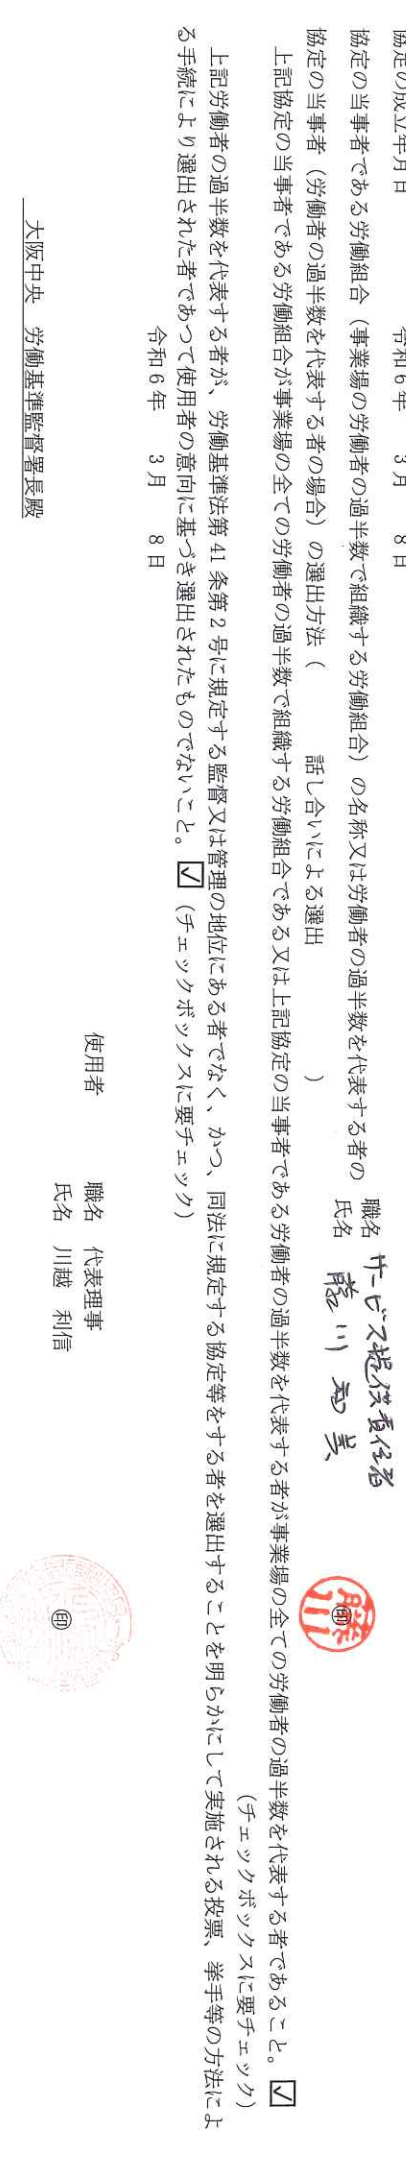 協定の成立年月日 令和6年 3月 8日
協定の当事者である労働組合（事業場の労働者の過半数で組織する労働組合）の名称又は労働者の過半数を代表する者の
職名 サービス提供責任者
氏名 藤川
協定の当事者（労働者の過半数を代表する者の場合）の選出方法（ 話し合いによる選出 ）
上記協定の当事者である労働組合が事業場の全ての労働者の過半数で組織する労働組合である又は上記協定の当事者である労働者の過半数を代表する者が事業場の全ての労働者の過半数を代表する者であること。☑
（チェックボックスに要チェック）
上記労働者の過半数を代表する者が、労働基準法第41条第2号に規定する監督又は管理の地位にある者でなく、かつ、同法に規定する協定等をする者を選出することを明らかにして実施される投票、挙手等の方法によ
る手続により選出された者であつて使用者の意向に基づき選出されたものでないこと。☑（チェックボックスに要チェック）
令和6年 3月 8日
使用者 職名 代表理事
氏名 川越 利信 ㊞
大阪中央 労働基準監督署長殿